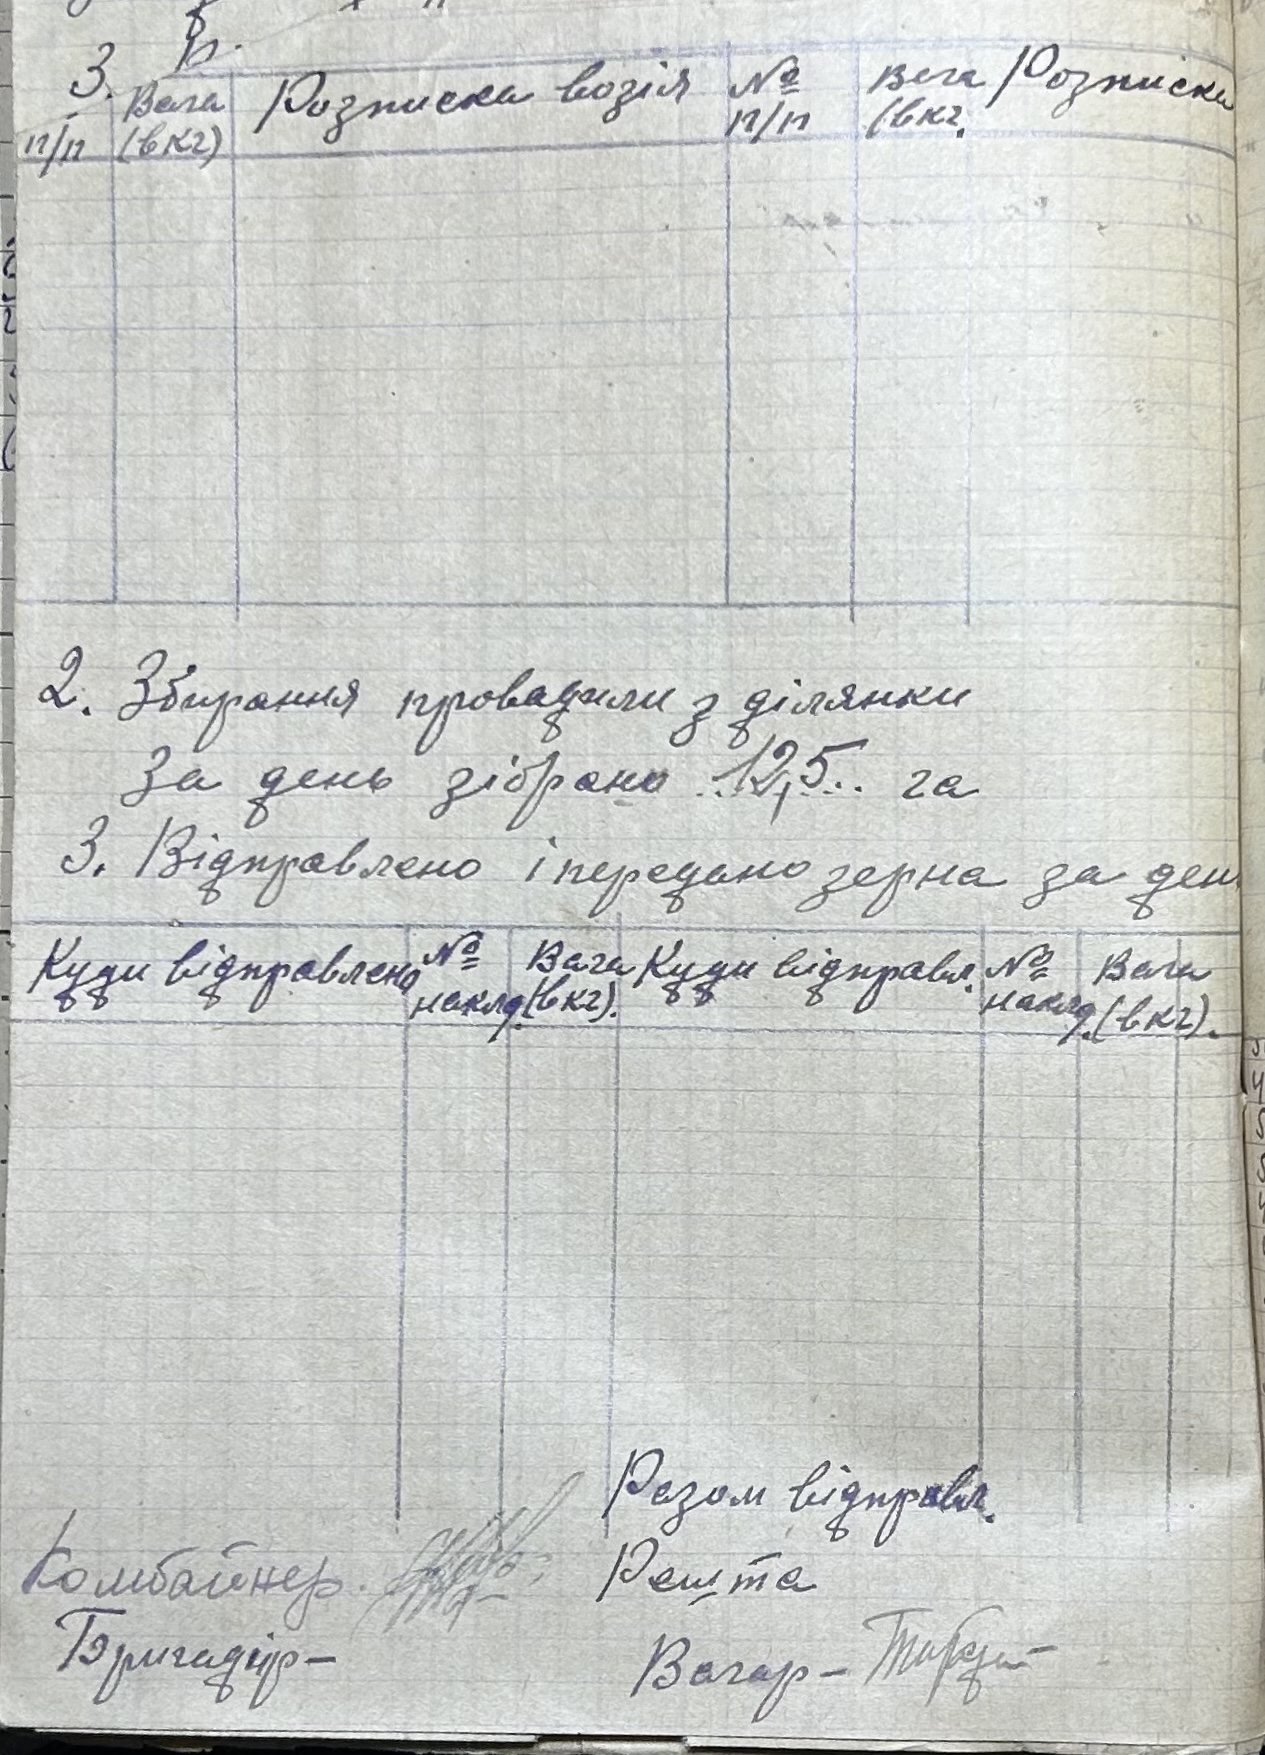 3. Вага Розписка возія № Вага Розписка
п/п (в кг) п/п (в кг.
2. Збирання провадили з ділянки
За день зібрано ..12,5.. га
3. Відправлено і передано зерна за ден
Куди відправлено № Вага Куди відправл. № Вага
накл. (в кг). накл. (в кг).
Разом відправл.
Комбайнер. Решта
Бригадір – Вагар –